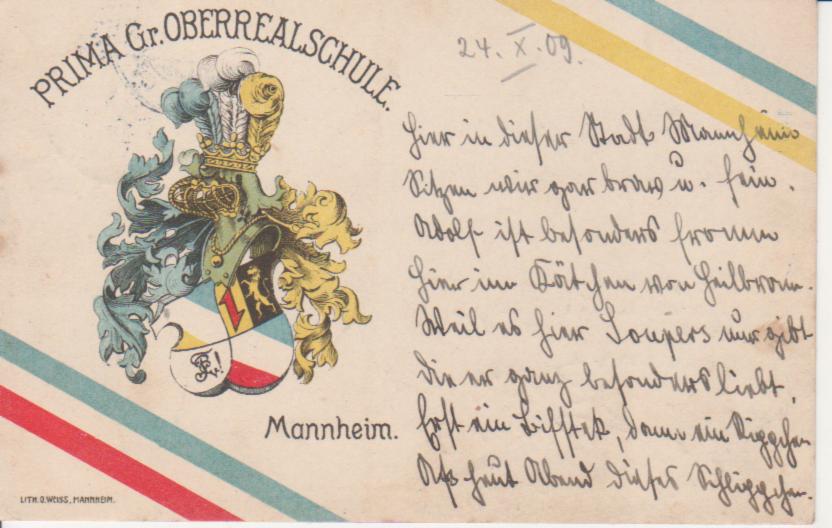 PRIMA Gr. OBERREALSCHULE.
24. X. 09.
Hier in dieser Stadt Mannheim
Sitzen wir gar brav u. fein.
Adolf ist besonders fromm
Hier im Kätchen von Heilbronn.
Weil es hier Soupers nur gibt
Die er ganz besonders liebt,
Erst ein Bifstek, dann ein Rippchen
Aß heut Abend dieses
Mannheim.
LITH. O. WEISS, MANNHEIM.